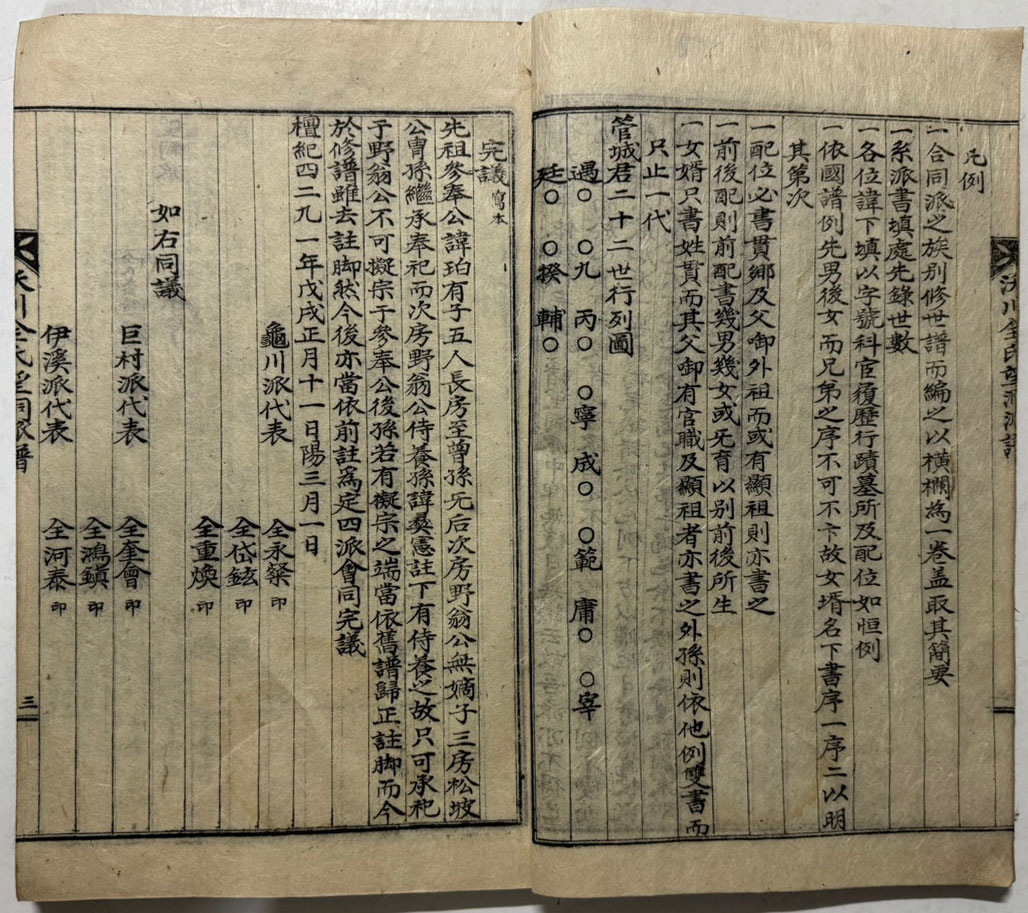 凡例
一合同派之族別修世譜而編之以橫欄為一卷盖取其簡要
一系派書填處先錄世數
一各位諱下填以字號科宦履歷行蹟墓所及配位如恒例
一依國譜例先男後女而兄弟之序不可不卞故女壻名下書序一序二以明
其第次
一配位必書貫鄉及父啣外祖而或有顯祖則亦書之
一前後配則前配書幾男幾女或旡育以別前後所生
一女婿只書姓貫而其父啣有官職及顯祖者亦書之外孫則依他例雙書而
只止一代
管城君二十二世行列圖
遇○ ○九 丙○ ○寧 成○ ○範 庸○ ○宰
廷○ ○揆 輔○
完議寫本
先祖參奉公諱珀有子五人長房至曾孫旡后次房野翁公無嫡子三房松坡
公胄孫繼承奉祀而次房野翁公侍養孫諱彛憲註下有侍養之故只可承祀
于野翁公不可擬宗于參奉公後孫若有擬宗之端當依舊譜歸正註脚而今
於修譜雖去註脚然今後亦當依前註爲定四派會同完議
檀紀四二九一年戊戌正月十一日陽三月一日
龜川派代表 全永槃 印
全岱鉉 印
全重煥 印
如右同議
巨村派代表 全奎會 印
全鴻鎮 印
伊溪派代表 全河泰 印
三